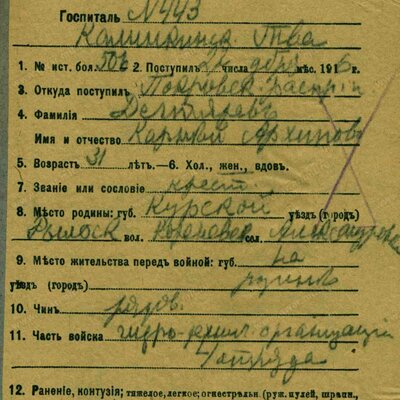 Госпиталь № 443
Калинкинск. Т-ва
1. № ист. бол. 2. Поступил числа мѣс. 1916 г.
3. Откуда поступил Покровск.
4. Фамилія Дегтяревъ
Имя и отчество Архиповъ
5. Возрастъ 31 лѣтъ.—6. Хол., жен., вдов.
7. Званіе или сословіе крест
8. Мѣсто родины: губ. Курской уѣздъ (городъ)
Рыльск вол. сел. Александровка
9. Мѣсто жительства передъ войной: губ. на
родинѣ
уѣздъ (городъ)
10. Чинъ рядов.
11. Часть войска гидро-техн. организаціи
4 отряда
12. Раненіе, контузія; тяжелое, легкое; огнестрѣльн. (руж. пулей, шрапн.,